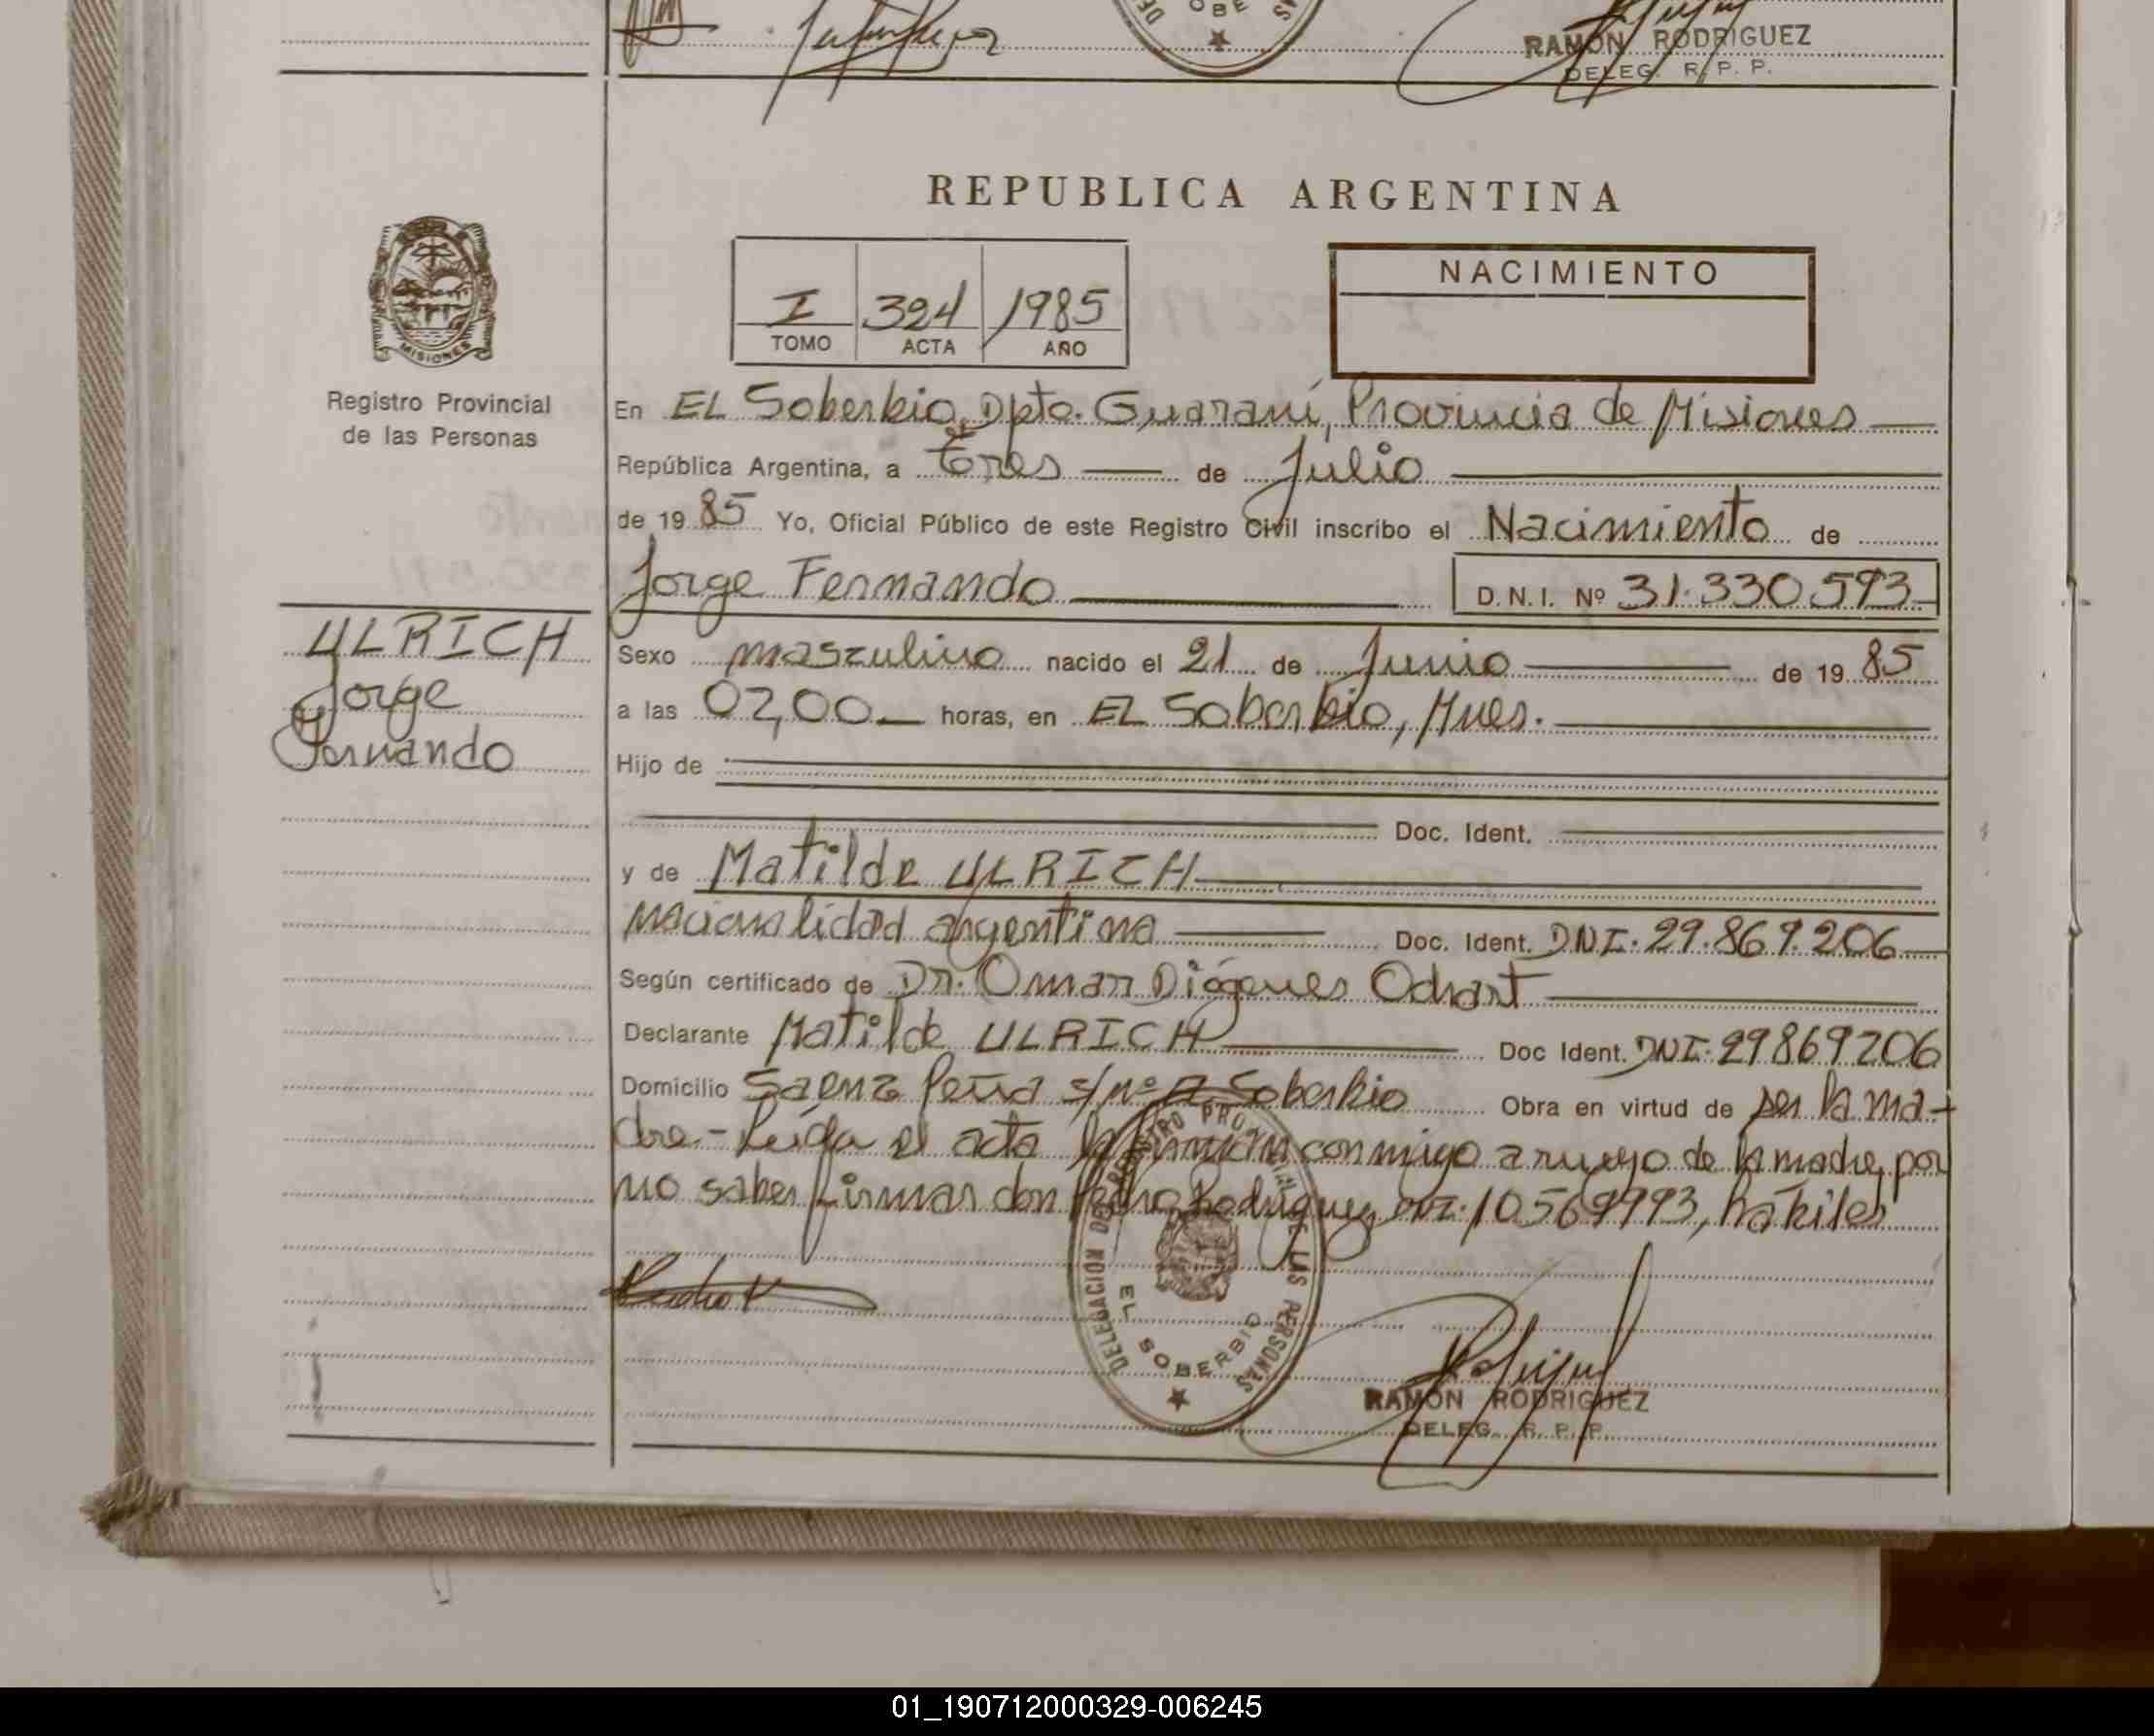 RAMON RODRIGUEZ
DELEG. R. P. P.
REPUBLICA ARGENTINA
I 324 1985
TOMO ACTA AÑO
NACIMIENTO
MISIONES
Registro Provincial
de las Personas
En EL Soberbio, Dpto. Guaraní, Provincia de Misiones
República Argentina, a tres de Julio
de 19 85 Yo, Oficial Público de este Registro Civil inscribo el Nacimiento de
Jorge Fernando D.N.I. Nº 31.330.593
ULRICH
Jorge
Fernando
Sexo masculino nacido el 21 de Junio de 19 85
a las 02,00 horas, en EL Soberbio, Mnes.
Hijo de
Doc. Ident.
y de Matilde ULRICH
nacionalidad argentina Doc. Ident. DNI. 29.869.206
Según certificado de Dr. Omar Diógenes Odnart
Declarante Matilde ULRICH Doc Ident. DNI. 29869206
Domicilio Saenz Peña s/nº El Soberbio Obra en virtud de ser la ma-
dre.- Leída el acta la firman conmigo a ruego de la madre, por
no saber firmar don Pedro Rodriguez DNI.
DELEGACION DEL REGISTRO PROVINCIAL DE LAS PERSONAS
EL SOBERBIO
RAMON RODRIGUEZ
DELEG. R. P. P.
01_190712000329-006245